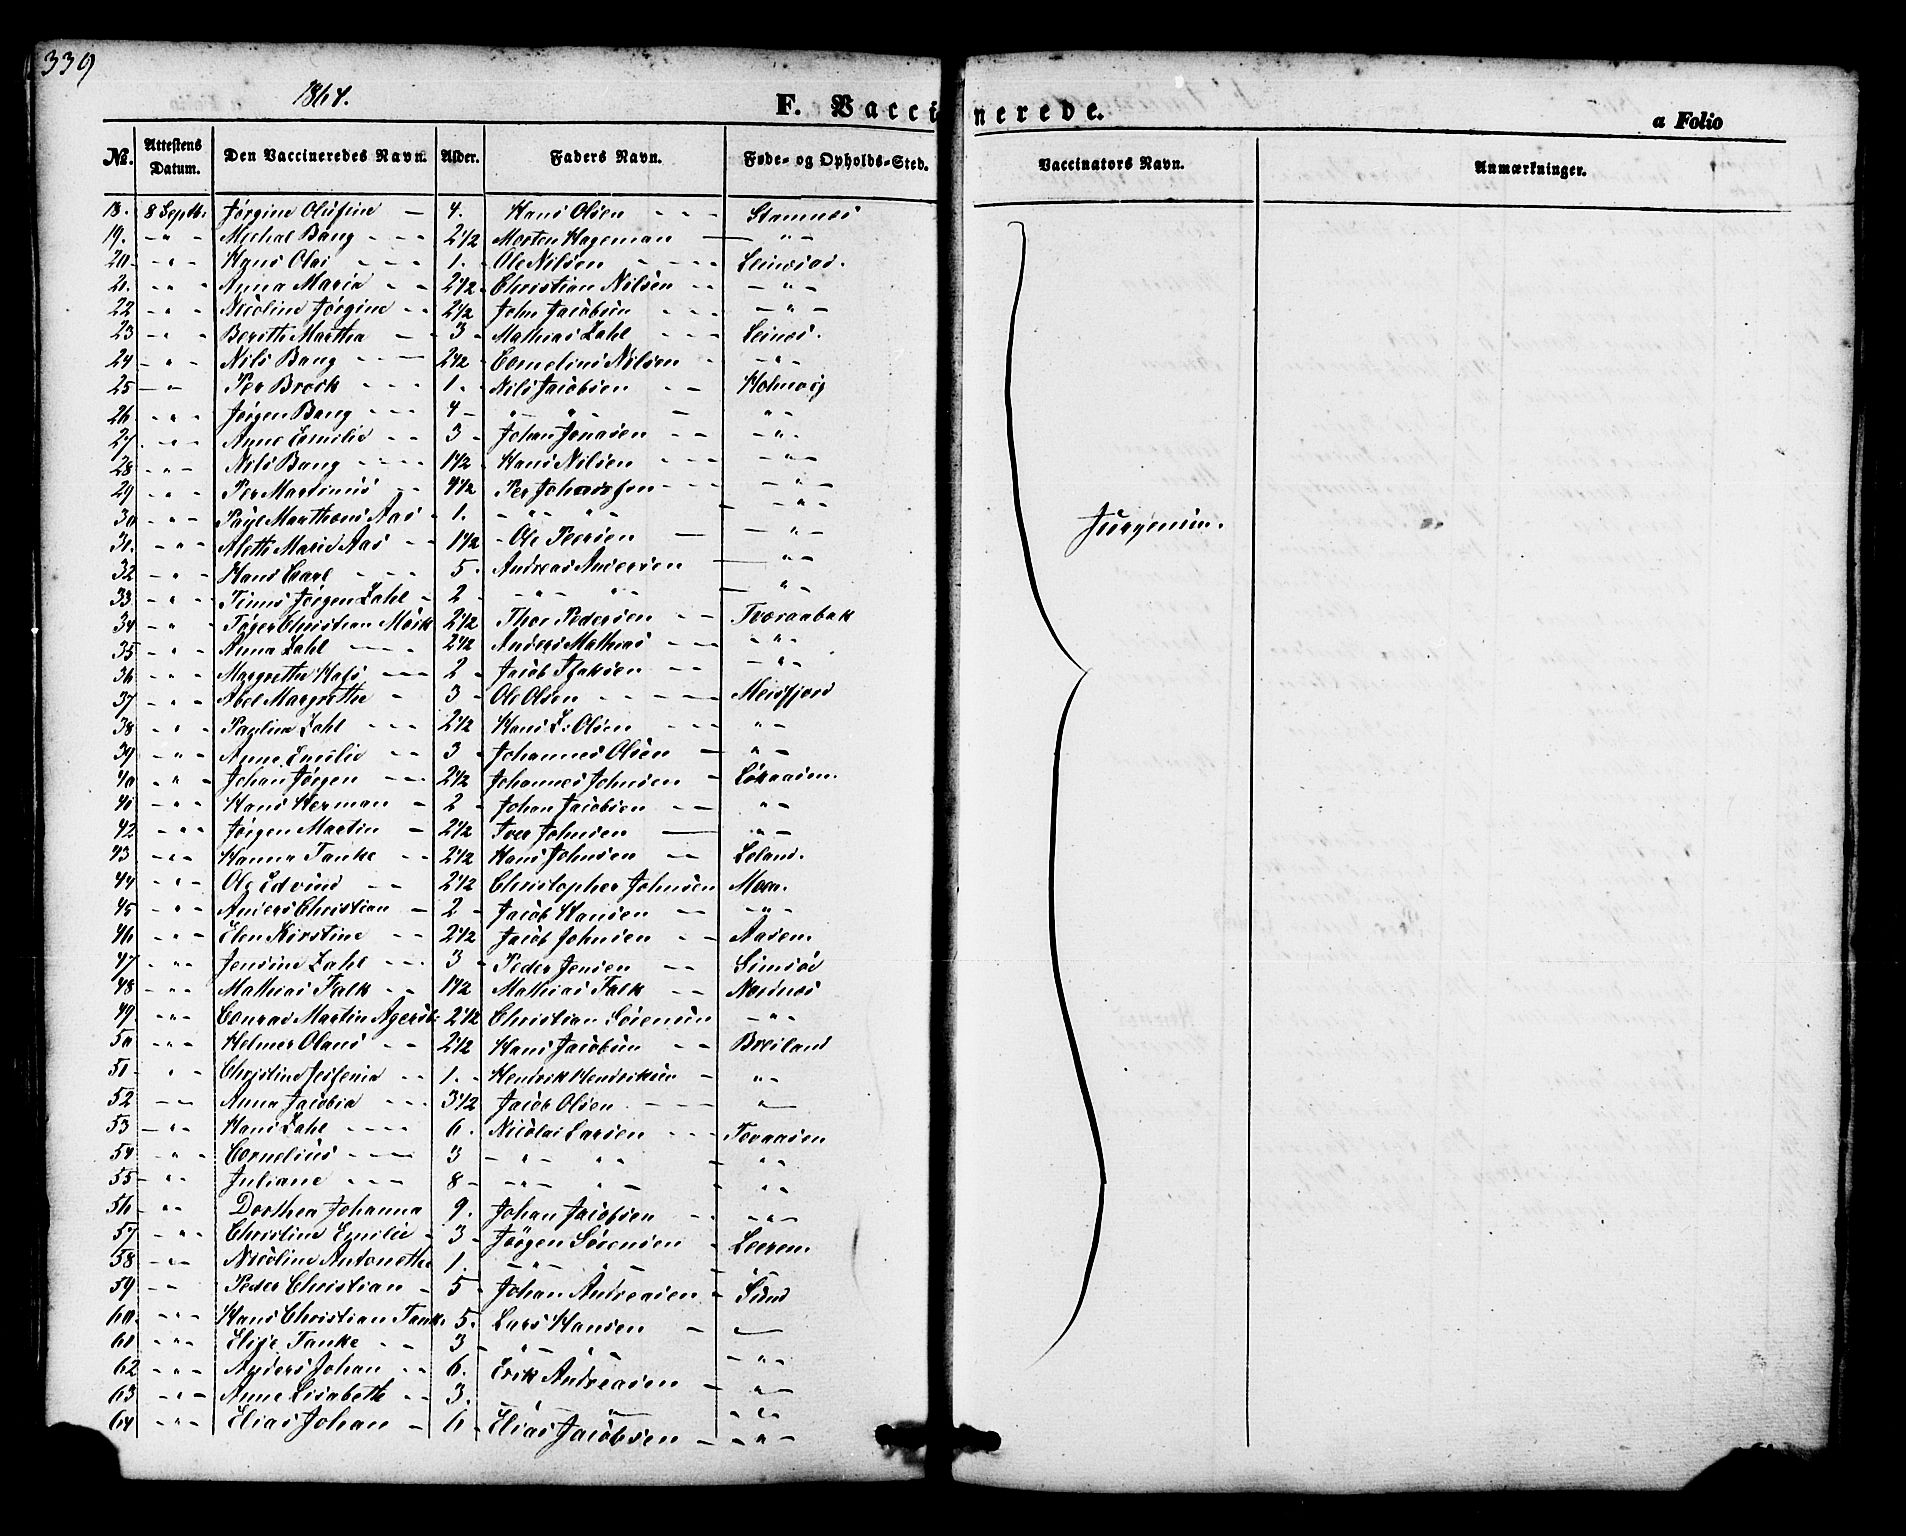 339
1864.
F. Vaccinerede.
a Folio
No. Attestens Datum. Den Vaccineredes Navn. Alder. Faders Navn. Føde- og Opholds-Sted. Vaccinators Navn. Anmærkninger.
18. 8 Septb. Jørgine Olufine — 4. Hans Olsen - - - Stamnes
19. - " - Michal Bang - - - 2 1/2 Morten Hageman — - " -
20 - " - Hans Olai - - - 1. Ole Nilsen - - - -
21. - " - Anna Maria - - 2 1/2 Christian Nilsen - - - " -
22 - " - Nicoline Jørgine - - 2 1/2 John Jacobsen - - - - " -
23 - " - Berith Martha - - 3 Mathias Zahl - - - Leines.
24 - " - Nils Bang - - — 2 1/2 Cornelius Nilsen - - " -
25 - " - Per Brock - - - 1. Nils Jacobsen - - Holmvig
26 - " - Jørgen Bang - - - 4 - - " - " - - " -
27 - " - Anne Emilie - - 3 - Johan Jonasen - - - " -
28 - " - Nils Bang - - - - 1 1/2 Hans Nilsen - - - - " -
29 - " - Per Martinus - - 4 1/2 Per - - - - " -
30 - " - Aas - 1. - " - " - - " -
31. - " - Aleth Marie Aas - - 1 1/2 - Ole Peersen — - " -
32 - " - Hans Carl - - - 5. Andreas Andersen — - " -
33 - " - Jørgen Zahl - 2 - - " - " - — " -
34 - " - Christian Mørk 2 1/2 Thor Pedersen - -
35 - " - Anna Zahl - - - 2 1/2 Anders Mathias - - - " -
36 - " - Margrethe - - 2 - Jacob - - - " -
37 - " - Abel Margrethe - 3 - Ole Olsen - - - - Meisfjord
38 - " - Paulina Zahl - - - 2 1/2 Hans Z: Olsen - - - " -
39 - " - Anne Emilie - - 3 - Johannes Olsen — " -
40 - " - Johan Jørgen - - - 2 1/2 Johannes Johnsen -
41 - " - Hans Herman - 2 - Johan Jacobsen - - " -
42 - " - Jørgen Martin - 2 1/2 Iver Johnsen — " -
43 - " - Hanna Tanke - - 2 1/2 Hans Johnsen - - Leland.
44 - " - Ole Edvind - - 2 1/2 Christopher Johnsen
45 - " - Anders Christian - 2 - Jacob Hansen - - - " -
46 - " - Elen Kirstine - - 2 1/2 Jacob Johnsen - - Aasen
47 - " - Jensine Zahl - - - 3 - Peder Jensen - -
48 - " - Mathias Falk - - 1 1/2 Mathias Falk - -
49 - " - Conrad Martin 2 1/2 Christian Sørensen - " -
50 - " - Helmer Olaus - - 2 1/2 Hans Jacobsen - - Breiland
51 - " - Christine - - 1. - Henrik Henriksen - " -
52 - " - Anna Jacobia - - - 3 1/2 Jacob Olsen - - - - " —
53 - " - Hans Zahl - - - - 6. Nicolai Larsen - - -
54 - " - Cornelius - - — 3 - " - " " - " "
55 - " - Juliane - - - 8 - - " - " - " "
56 - " - Dorthea Johanna 9. Johan Jacobsen - - - " -
57 - " - Christine Emilie - 3 - Jörgen Sörensen -
58 - " - Nicoline Antonethe 1. - " - " - - " -
59 - " - Peder Christian - 5 - Johan Andreasen - Sund
60. - " - Hans Christian Tanke 5. Lars Hansen - " —
61 - " - Elise Tanke - - 3 - " " " - " -
62 - " - Anders Johan - - 6. Erik Andreasen - - " -
63 - " - Anne Lisabeth - - 3. - " - - " -
64 - " - Elias Johan - 6 - Elias Jacobsen - - " -